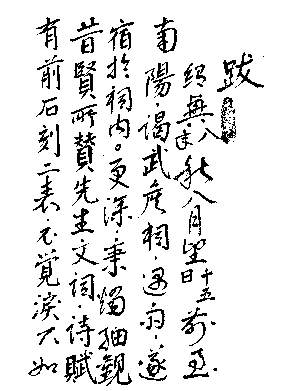 跋
紹興戊午秋八月望十五日前過
南陽·謁武侯祠·遇雨·遂
宿於祠内。更深秉燭細觀
昔賢所贊先生文詞·詩賦
前石刻二表·不覺淚下如